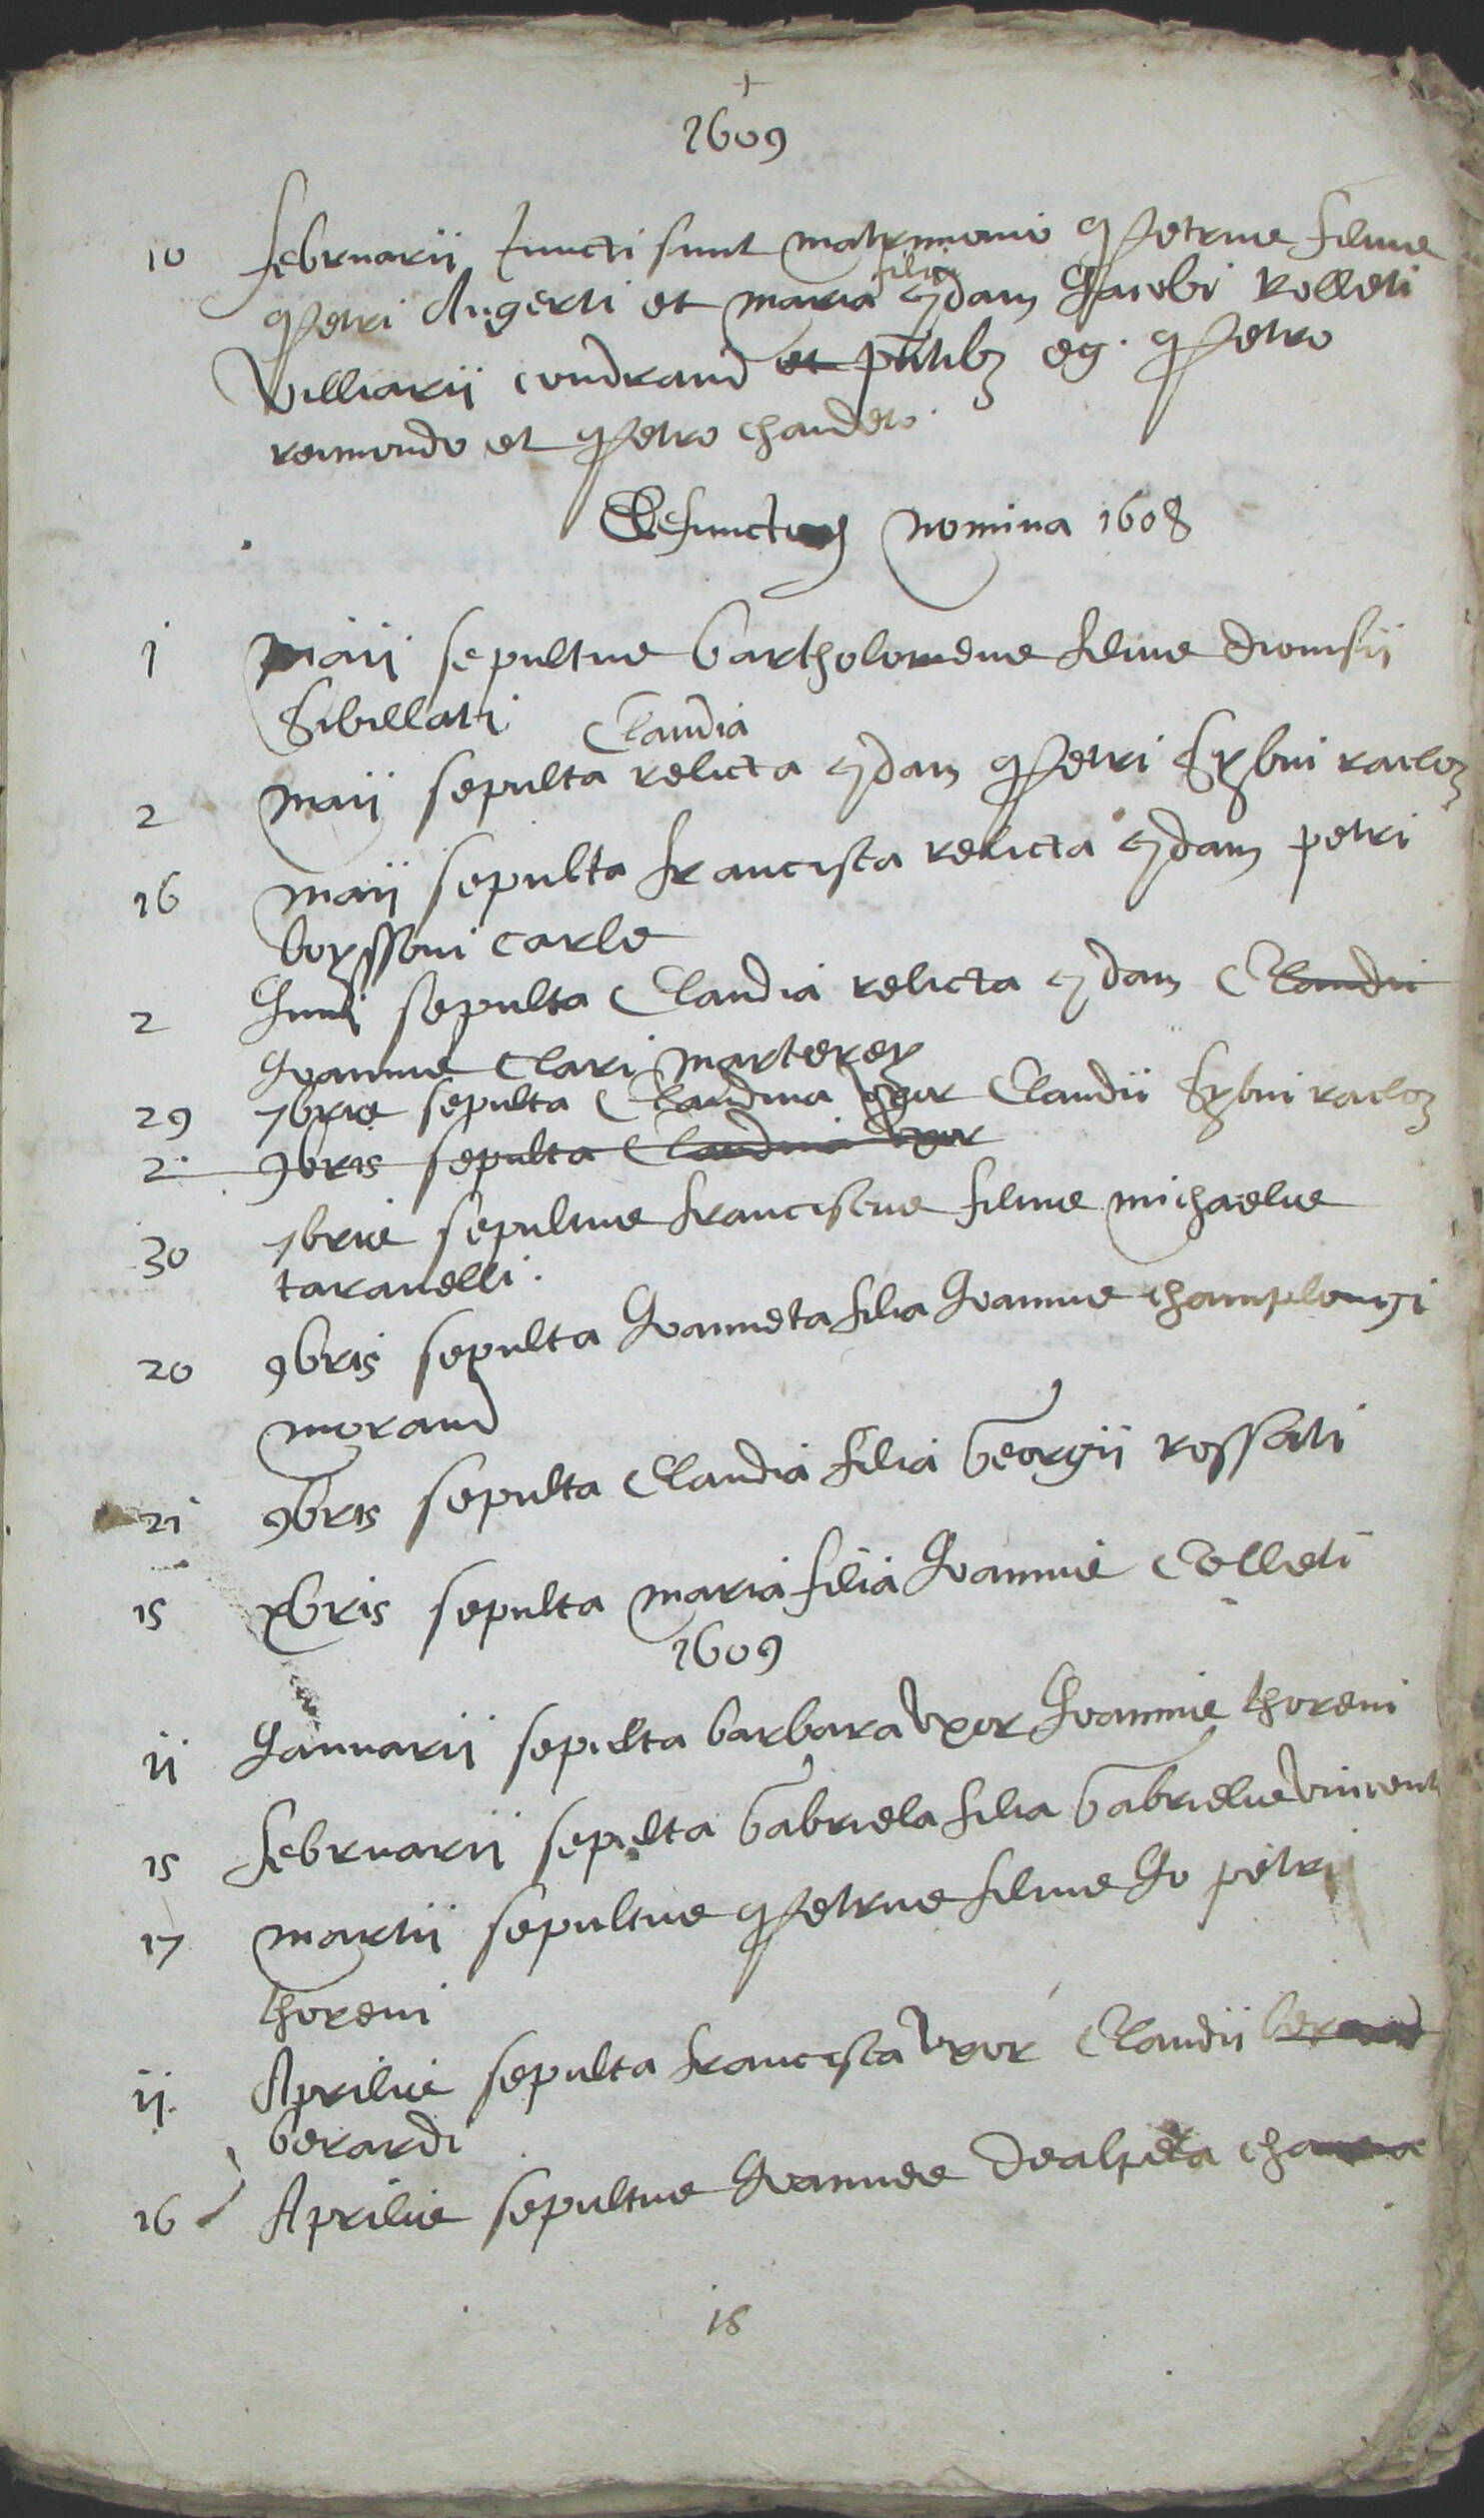 +
1609
10 februarii Juncti sunt matrimonio Petrus filius
filia
Petri Augerti et maria qdam Jacobi Rolleti
Villiarii condrand et pntibz eg. Petro
reimondo et Petro chandeto.
Defunctorum nomina 1608
j maii sepultus bartholomeus filius dionisii
Sibillati
Claudia
2 maii sepulta relicta qdam Petri Sybui
16 maii sepulta francisca relicta qdam petri
boyssoni carle
2 Junii sepulta Claudia relicta qdam Claudii
Joannis Clari marterey
29 7bris sepulta Claudina Vxor Claudii Sybui
2. 9bris sepulta Claudina Vxor
30 7bris sepultus franciscus filius michaelis
taravelli.
20 9bris sepulta Joanneta filia Joannis champlongi
morand
21 9bris sepulta Claudia filia Georgii rossati
15 xbris sepulta maria filia Joannis Colleti
1609
ij Januarii sepulta barbara Vxor Joannis thoreni
15 februarii sepulta Gabriela filia Gabrielis Vincent
17 martii sepultus Petrus filius Jo petri
thoreni
ij. Aprilis sepulta francisca Vxor Claudii
berardi
16 Aprilis sepultus Joannes
18